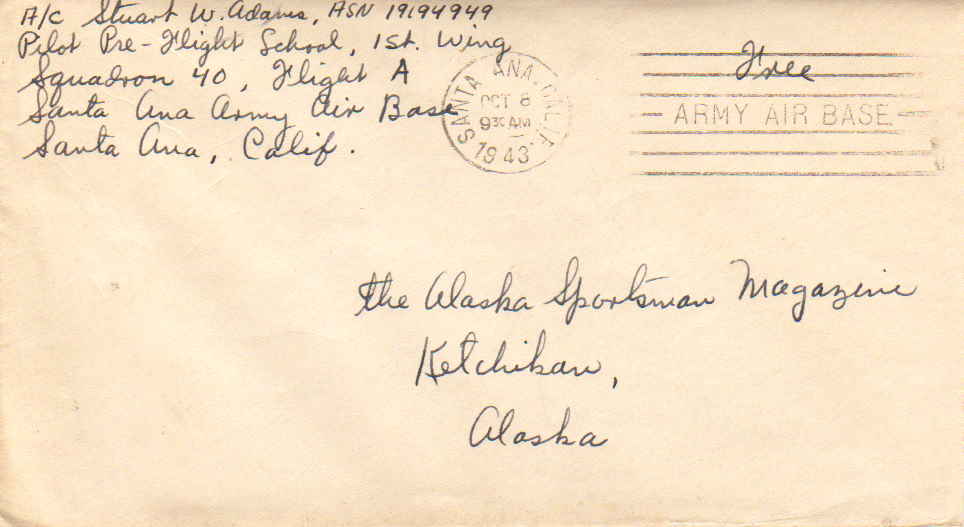 A/C Stuart W. Adams, ASN 19194949
Pilot Pre-Flight School, 1st. Wing
Squadron 40, Flight A
Santa Ana Army Air Base
Santa Ana, Calif.
SANTA ANA, CALIF.
OCT 8
9 30 AM
1943
Free
ARMY AIR BASE
the Alaska Sportsman Magazine
Ketchikan,
Alaska